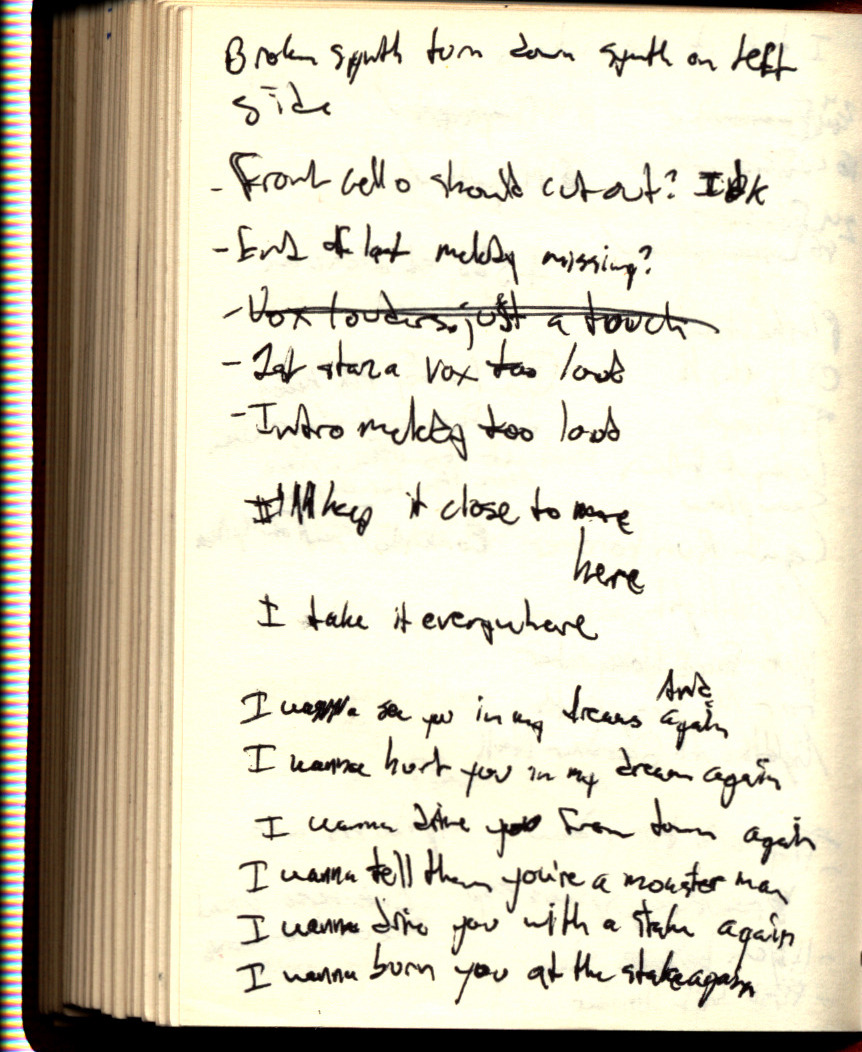 Broken synth turn down synth on left
side
- Front cello should cut out? IDK
- End of last melody missing?
- Vox louder, just a touch
- 1st stanza vox too loud
- Intro melody too loud
I'll keep it close to
here
I take it everywhere
And
I wanna see you in my dreams again
I wanna hurt you in my dream again
I wanna drive you from town again
I wanna tell them you're a monster man
I wanna drive you with a stake again
I wanna burn you at the stake again